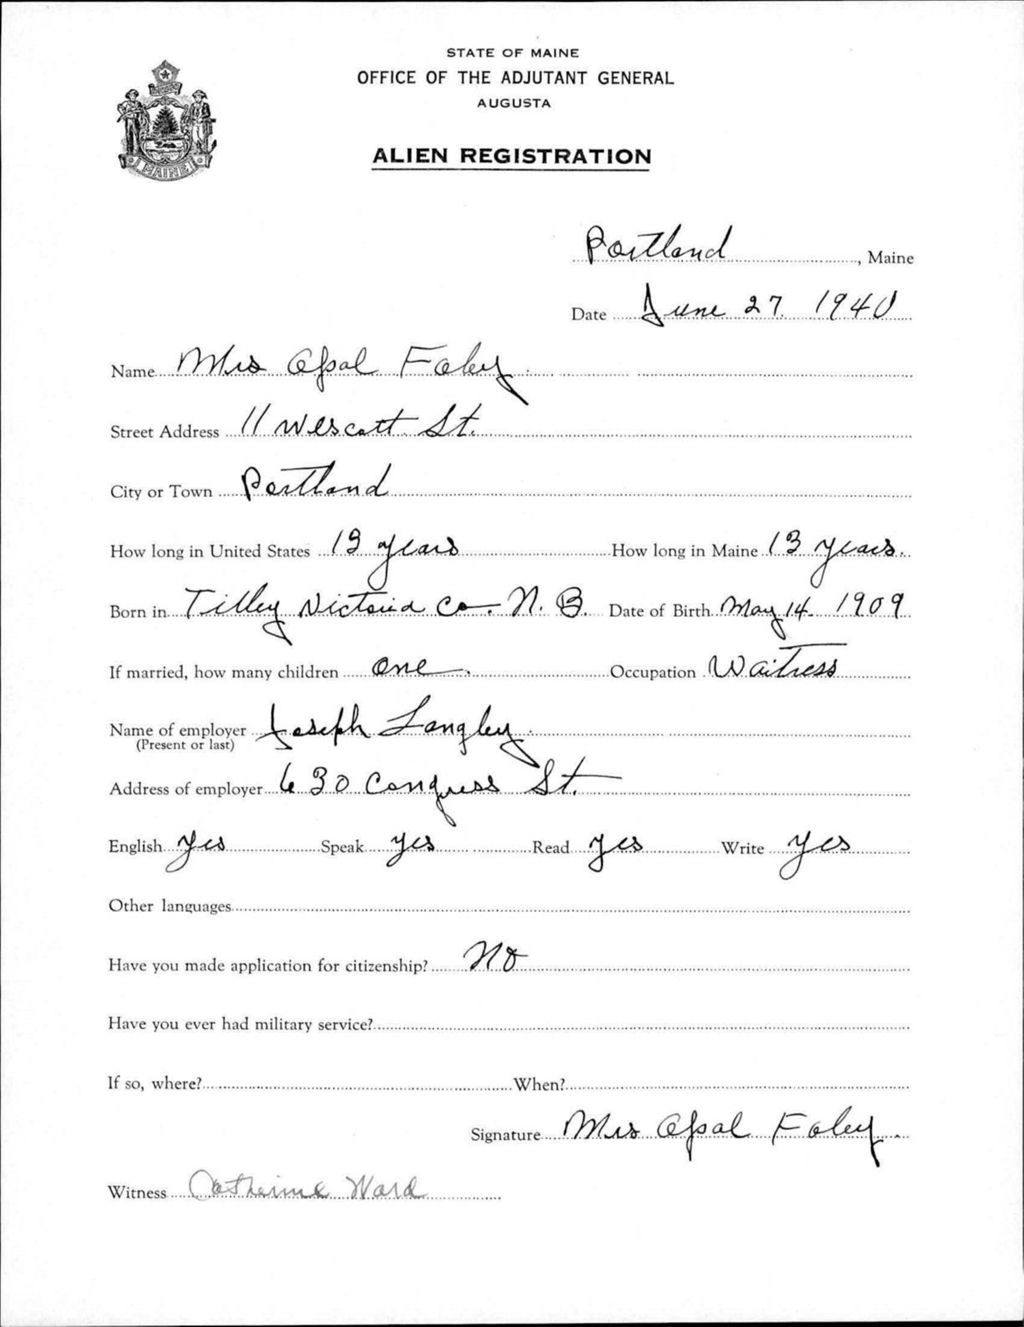 STATE OF MAINE
OFFICE OF THE ADJUTANT GENERAL
AUGUSTA
ALIEN REGISTRATION
MAINE
Portland, Maine
Date June 27. 1940
Name Mrs Opal Foley.
Street Address 11 Wescott St.
City or Town Portland
How long in United States 13 years How long in Maine 13 years.
Born in Tilley Victoria Co- N. B. Date of Birth May 14- 1909
If married, how many children One. Occupation Waitress
Name of employer Joseph Langley.
(Present or last)
Address of employer 630 Congress St.
English yes Speak yes Read yes Write yes
Other languages
Have you made application for citizenship? No
Have you ever had military service?
If so, where? When?
Signature Mrs Opal Foley.
Witness Catherine Ward